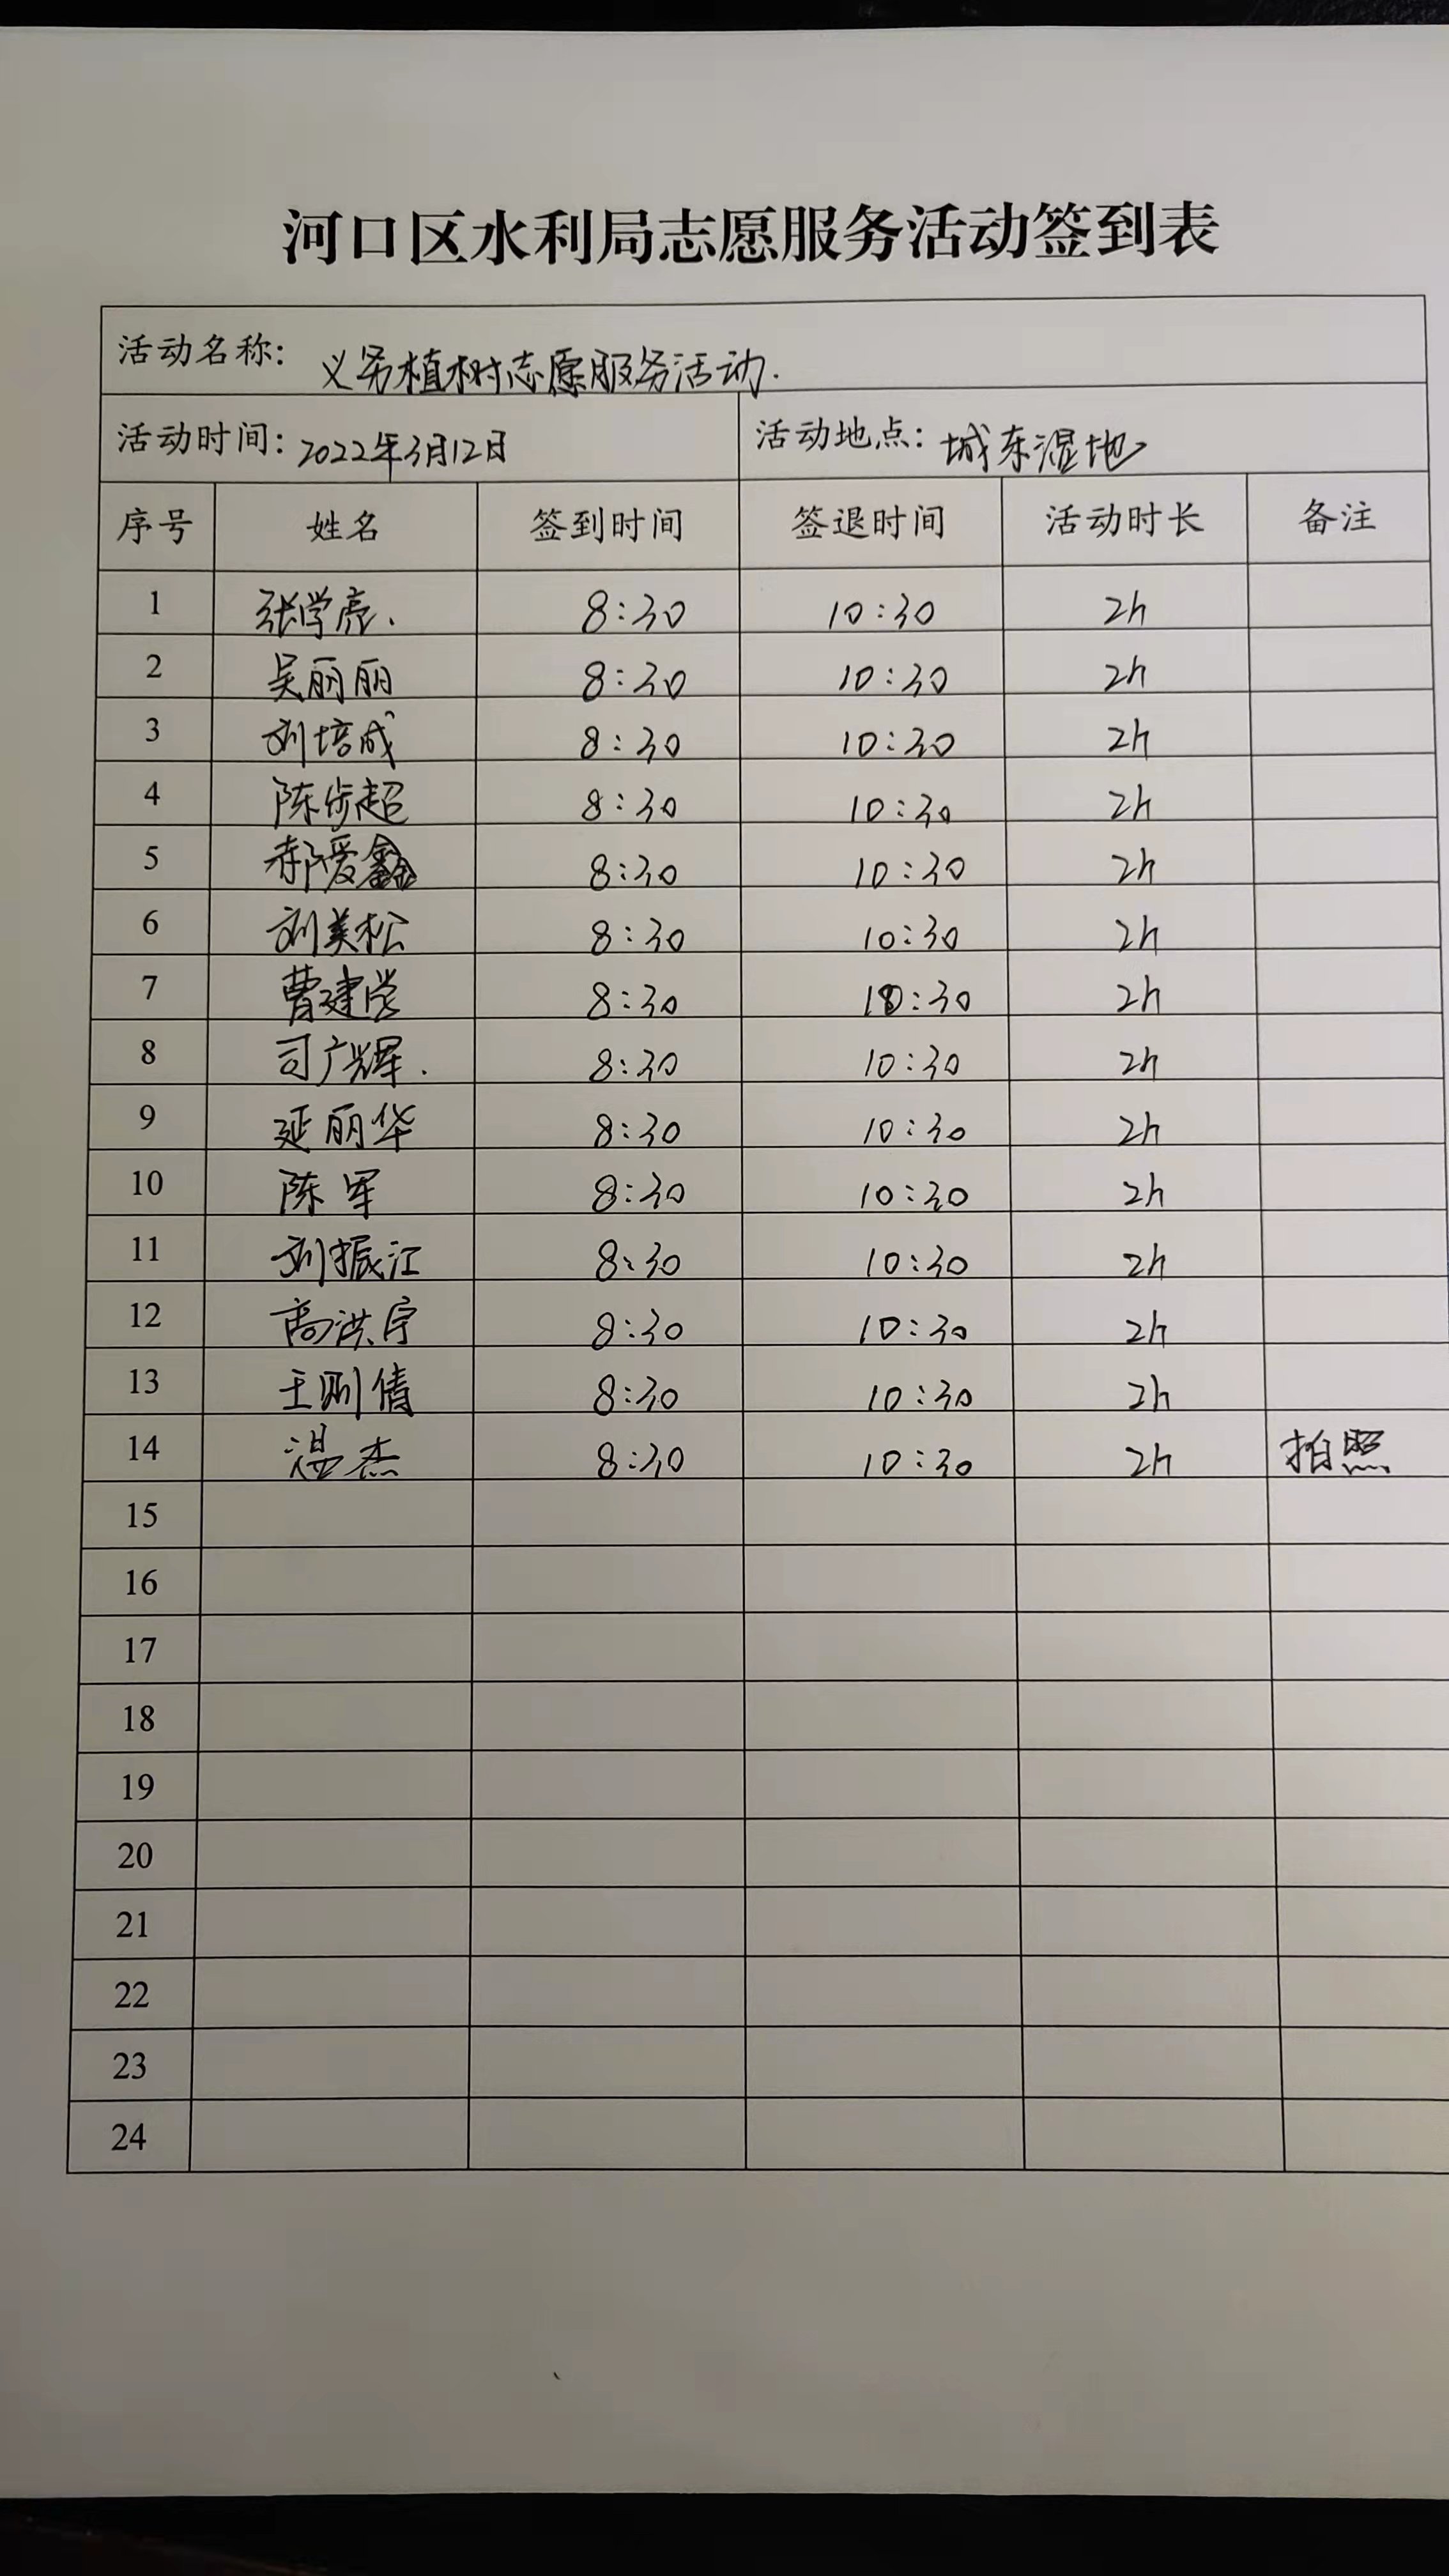 河口区水利局志愿服务活动签到表
活动名称: 义务植树志愿服务活动.
活动时间: 2022年3月12日 活动地点: 城东湿地
序号 姓名 签到时间 签退时间 活动时长 备注
1 张学亮. 8:30 10:30 2h
2 吴丽丽 8:30 10:30 2h
3 刘培成 8:30 10:30 2h
4 陈步超 8:30 10:30 2h
5 郝爱鑫 8:30 10:30 2h
6 刘美松 8:30 10:30 2h
7 曹建营 8:30 10:30 2h
8 司广辉. 8:30 10:30 2h
9 延丽华 8:30 10:30 2h
10 陈军 8:30 10:30 2h
11 刘振江 8:30 10:30 2h
12 高洪宇 8:30 10:30 2h
13 王 倩 8:30 10:30 2h
14 温杰 8:30 10:30 2h 拍照
15
16
17
18
19
20
21
22
23
24